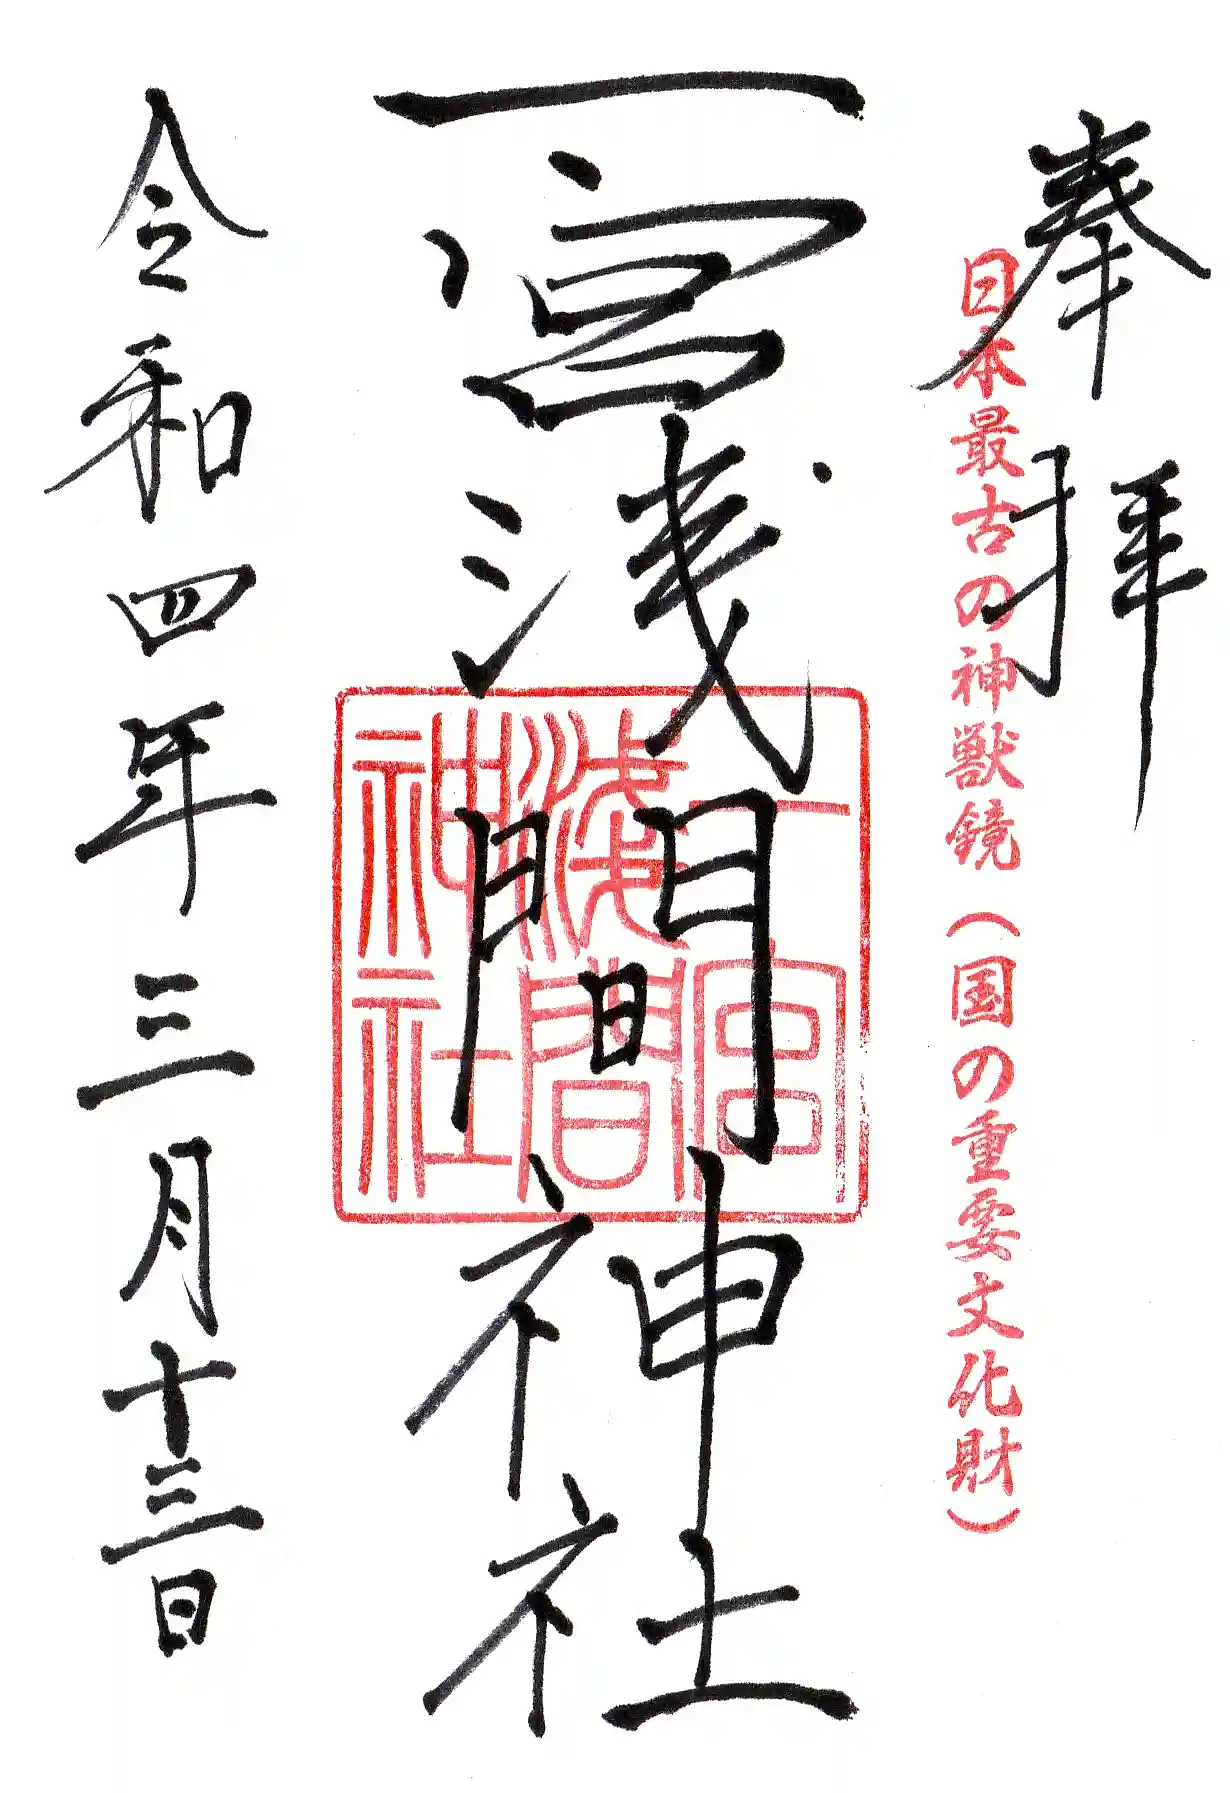 奉拝
日本最古の神獣鏡（国の重要文化財）
一宮浅間神社
一宮
浅間
神社
令和四年三月十三日